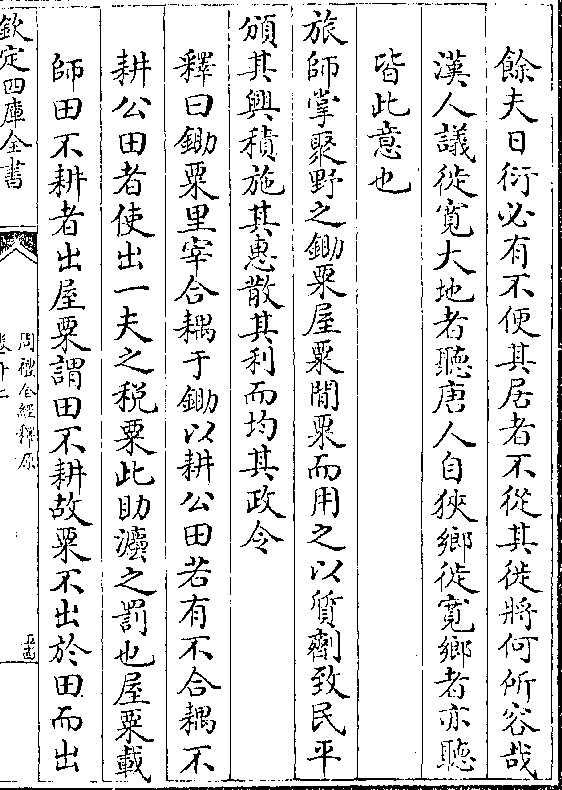 餘夫日衍必有不便其居者不從其徙將何所容哉
漢人議徙寛大地者聽唐人自狹鄉徙寛鄉者亦聽
皆此意也
旅師掌聚野之鋤粟屋粟閒粟而用之以質劑致民平
頒其興積施其惠散其利而均其政令
釋曰鋤粟里宰合耦于鋤以耕公田若有不合耦不
耕公田者使出一夫之税粟此助灋之罰也屋粟載
師田不耕者出屋粟謂田不耕故粟不出於田而出
欽定四庫全書
周禮全經釋原
卷十二